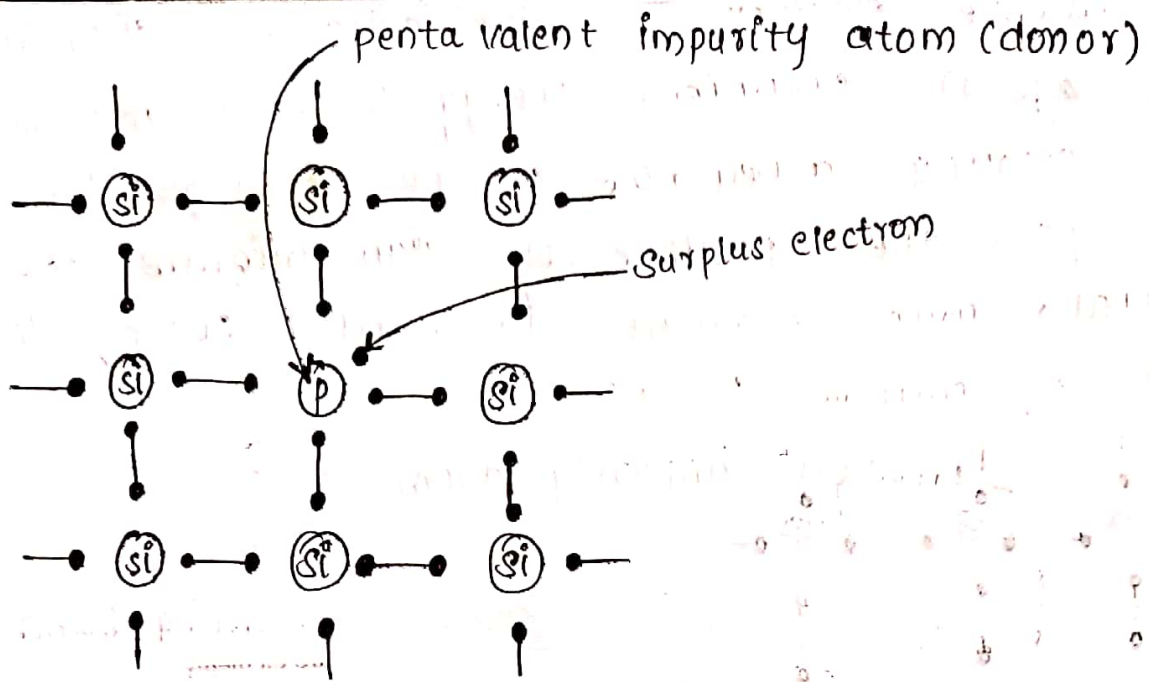 penta valent impurity atom (donor)
Si Si Si
Surplus electron
Si P Si
Si Si Si